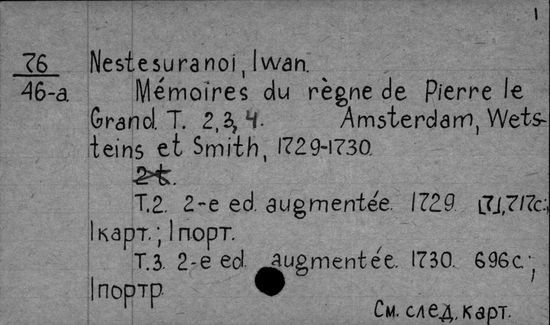 1
76
46-a
Nestesuranoi, Iwan.
Mémoires du règne de Pierre le
Grand. T. 2,3,4. Amsterdam, Wets-
teins et Smith, 1729-1730.
2 t.
T.2. 2-e ed. augmentée. 1729. [7], 717с.;
1карт.; 1порт.
T.3. 2-e ed. augmentée. 1730. 696с.;
1портр.
См. след. карт.